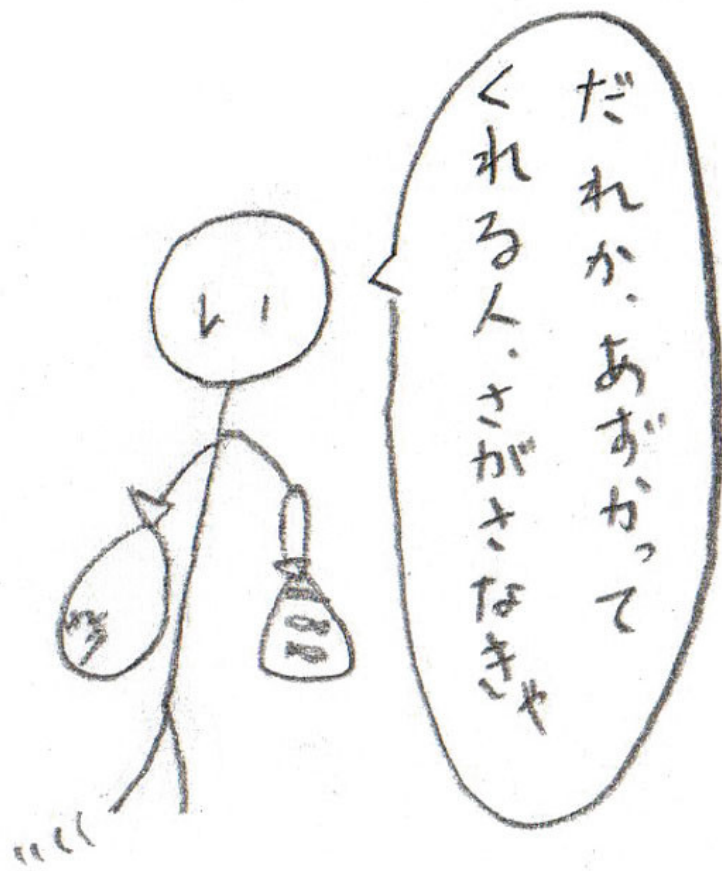 だれか、あずかって
くれる人、さがさなきゃ